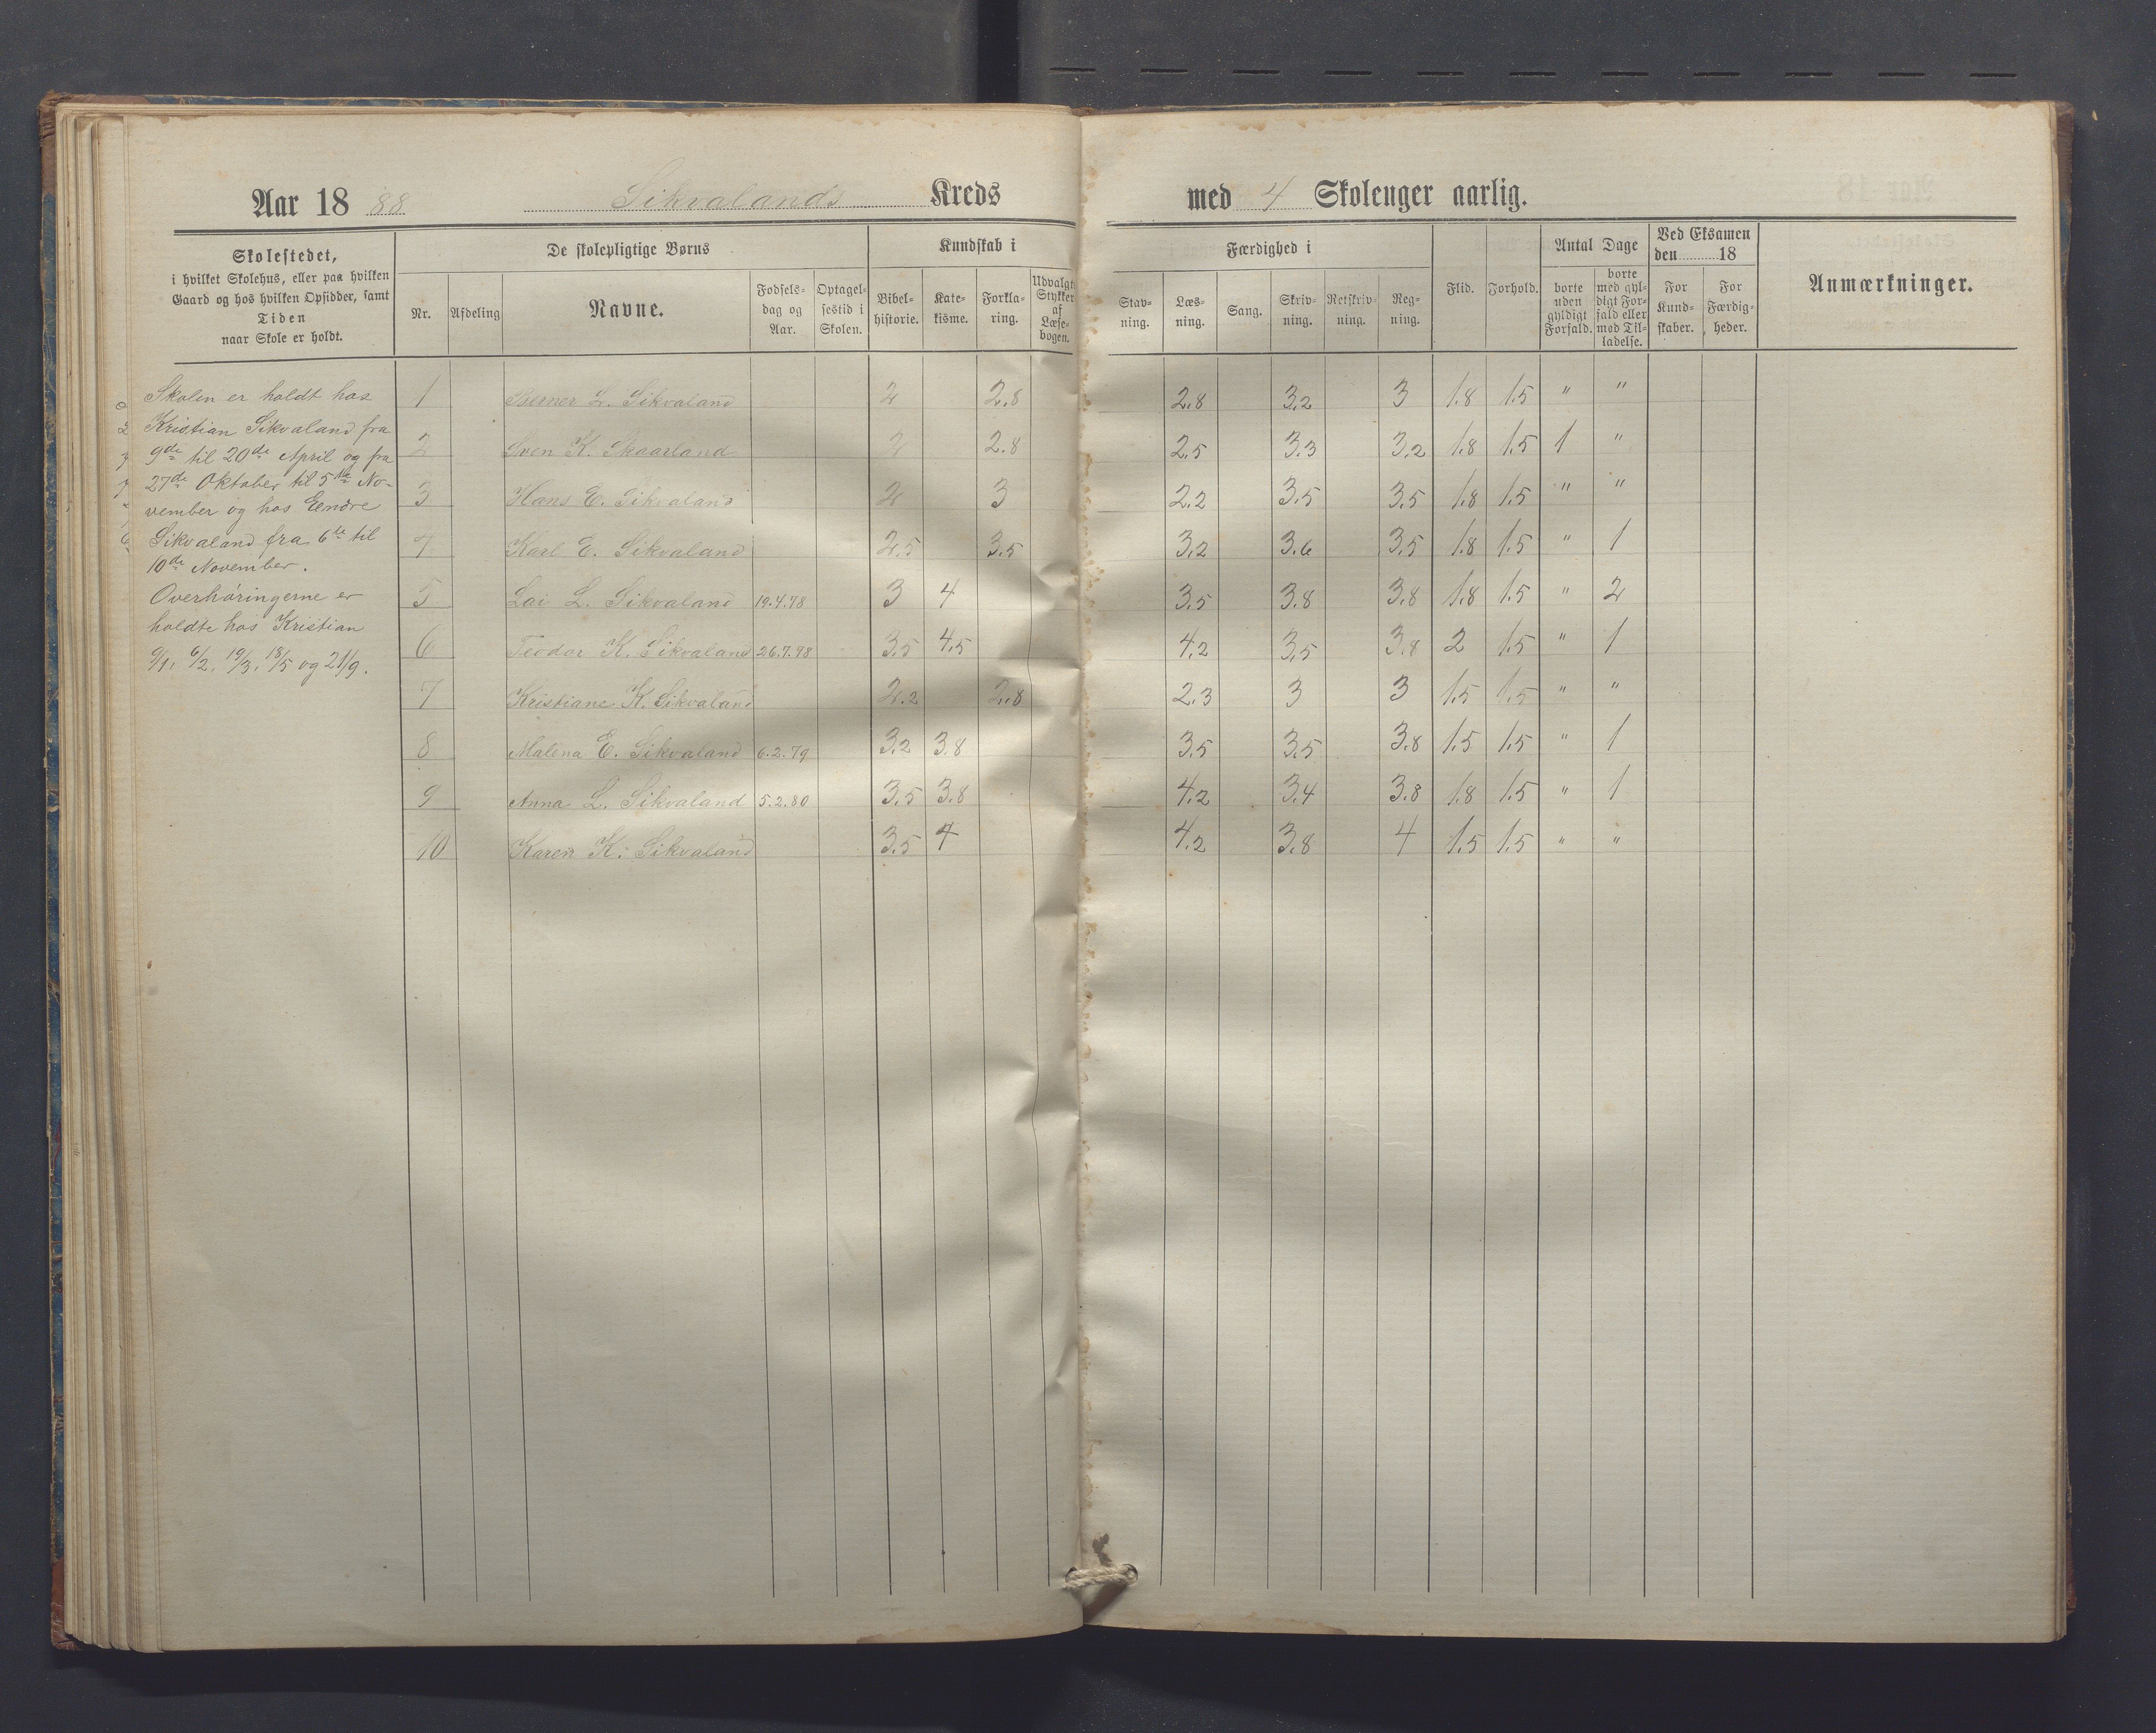 Aar 1888 Sikvalands Kreds med 4 Skoleuger aarlig.
Skolestedet,
i hvilket Skolehus, eller paa hvilken
Gaard og hos hvilken Opsidder, samt
Tiden
naar Skole er holdt.
De skolepligtige Børns
Nr. Afdeling Navne. Fødsels-dag og Aar. Optagel-sestid i Skolen.
Kundskab i
Bibel-historie. Kate-kisme. Forkla-ring. Udvalgte Stykker af Læse-bogen.
Færdighed i
Stav-ning. Læs-ning. Sang. Skriv-ning. Retskriv-ning. Reg-ning.
Flid. Forhold.
Antal Dage
borte uden gyldigt Forfald. borte med gyl-digt For-fald eller med Til-ladelse.
Ved Eksamen
den 18
For Kund-skaber. For Færdig-heder.
Anmærkninger.
Skolen er holdt hos
Kristian Sikvaland fra
9de til 20de April og fra
27de Oktober til 5te No-
vember og hos Eendre
Sikvaland fra 6te til
10de November.
Overhøringerne er
holdte hos Kristian
9/1, 6/2, 19/3, 18/5 og 21/9.
1 L. Sikvaland 2 2.8 2.8 3.2 3 1.8 1.5 " "
2 Sven K. Skaarland 2 2.8 2.5 3.3 3.2 1.8 1.5 1 "
3 Hans E. Sikvaland 2 3 2.2 3.5 3.5 1.8 1.5 " "
4 Karl E. Sikvaland 2.5 3.5 3.2 3.6 3.5 1.8 1.5 " 1
5 Lai L. Sikvaland 19.4.78 3 4 3.5 3.8 3.8 1.8 1.5 " 2
6 Teodor K. Sikvaland 26.7.78 3.5 4.5 4.2 3.5 3.8 2 1.5 " 1
7 Kristiane K. Sikvaland 2.2 2.8 2.3 3 3 1.5 1.5 " "
8 Malena E. Sikvaland 6.2.79 3.2 3.8 3.5 3.5 3.8 1.5 1.5 " 1
9 Anna L. Sikvaland 5.2.80 3.5 3.8 4.2 3.4 3.8 1.8 1.5 " 1
10 Karen K. Sikvaland 3.5 4 4.2 3.8 4 1.5 1.5 " "